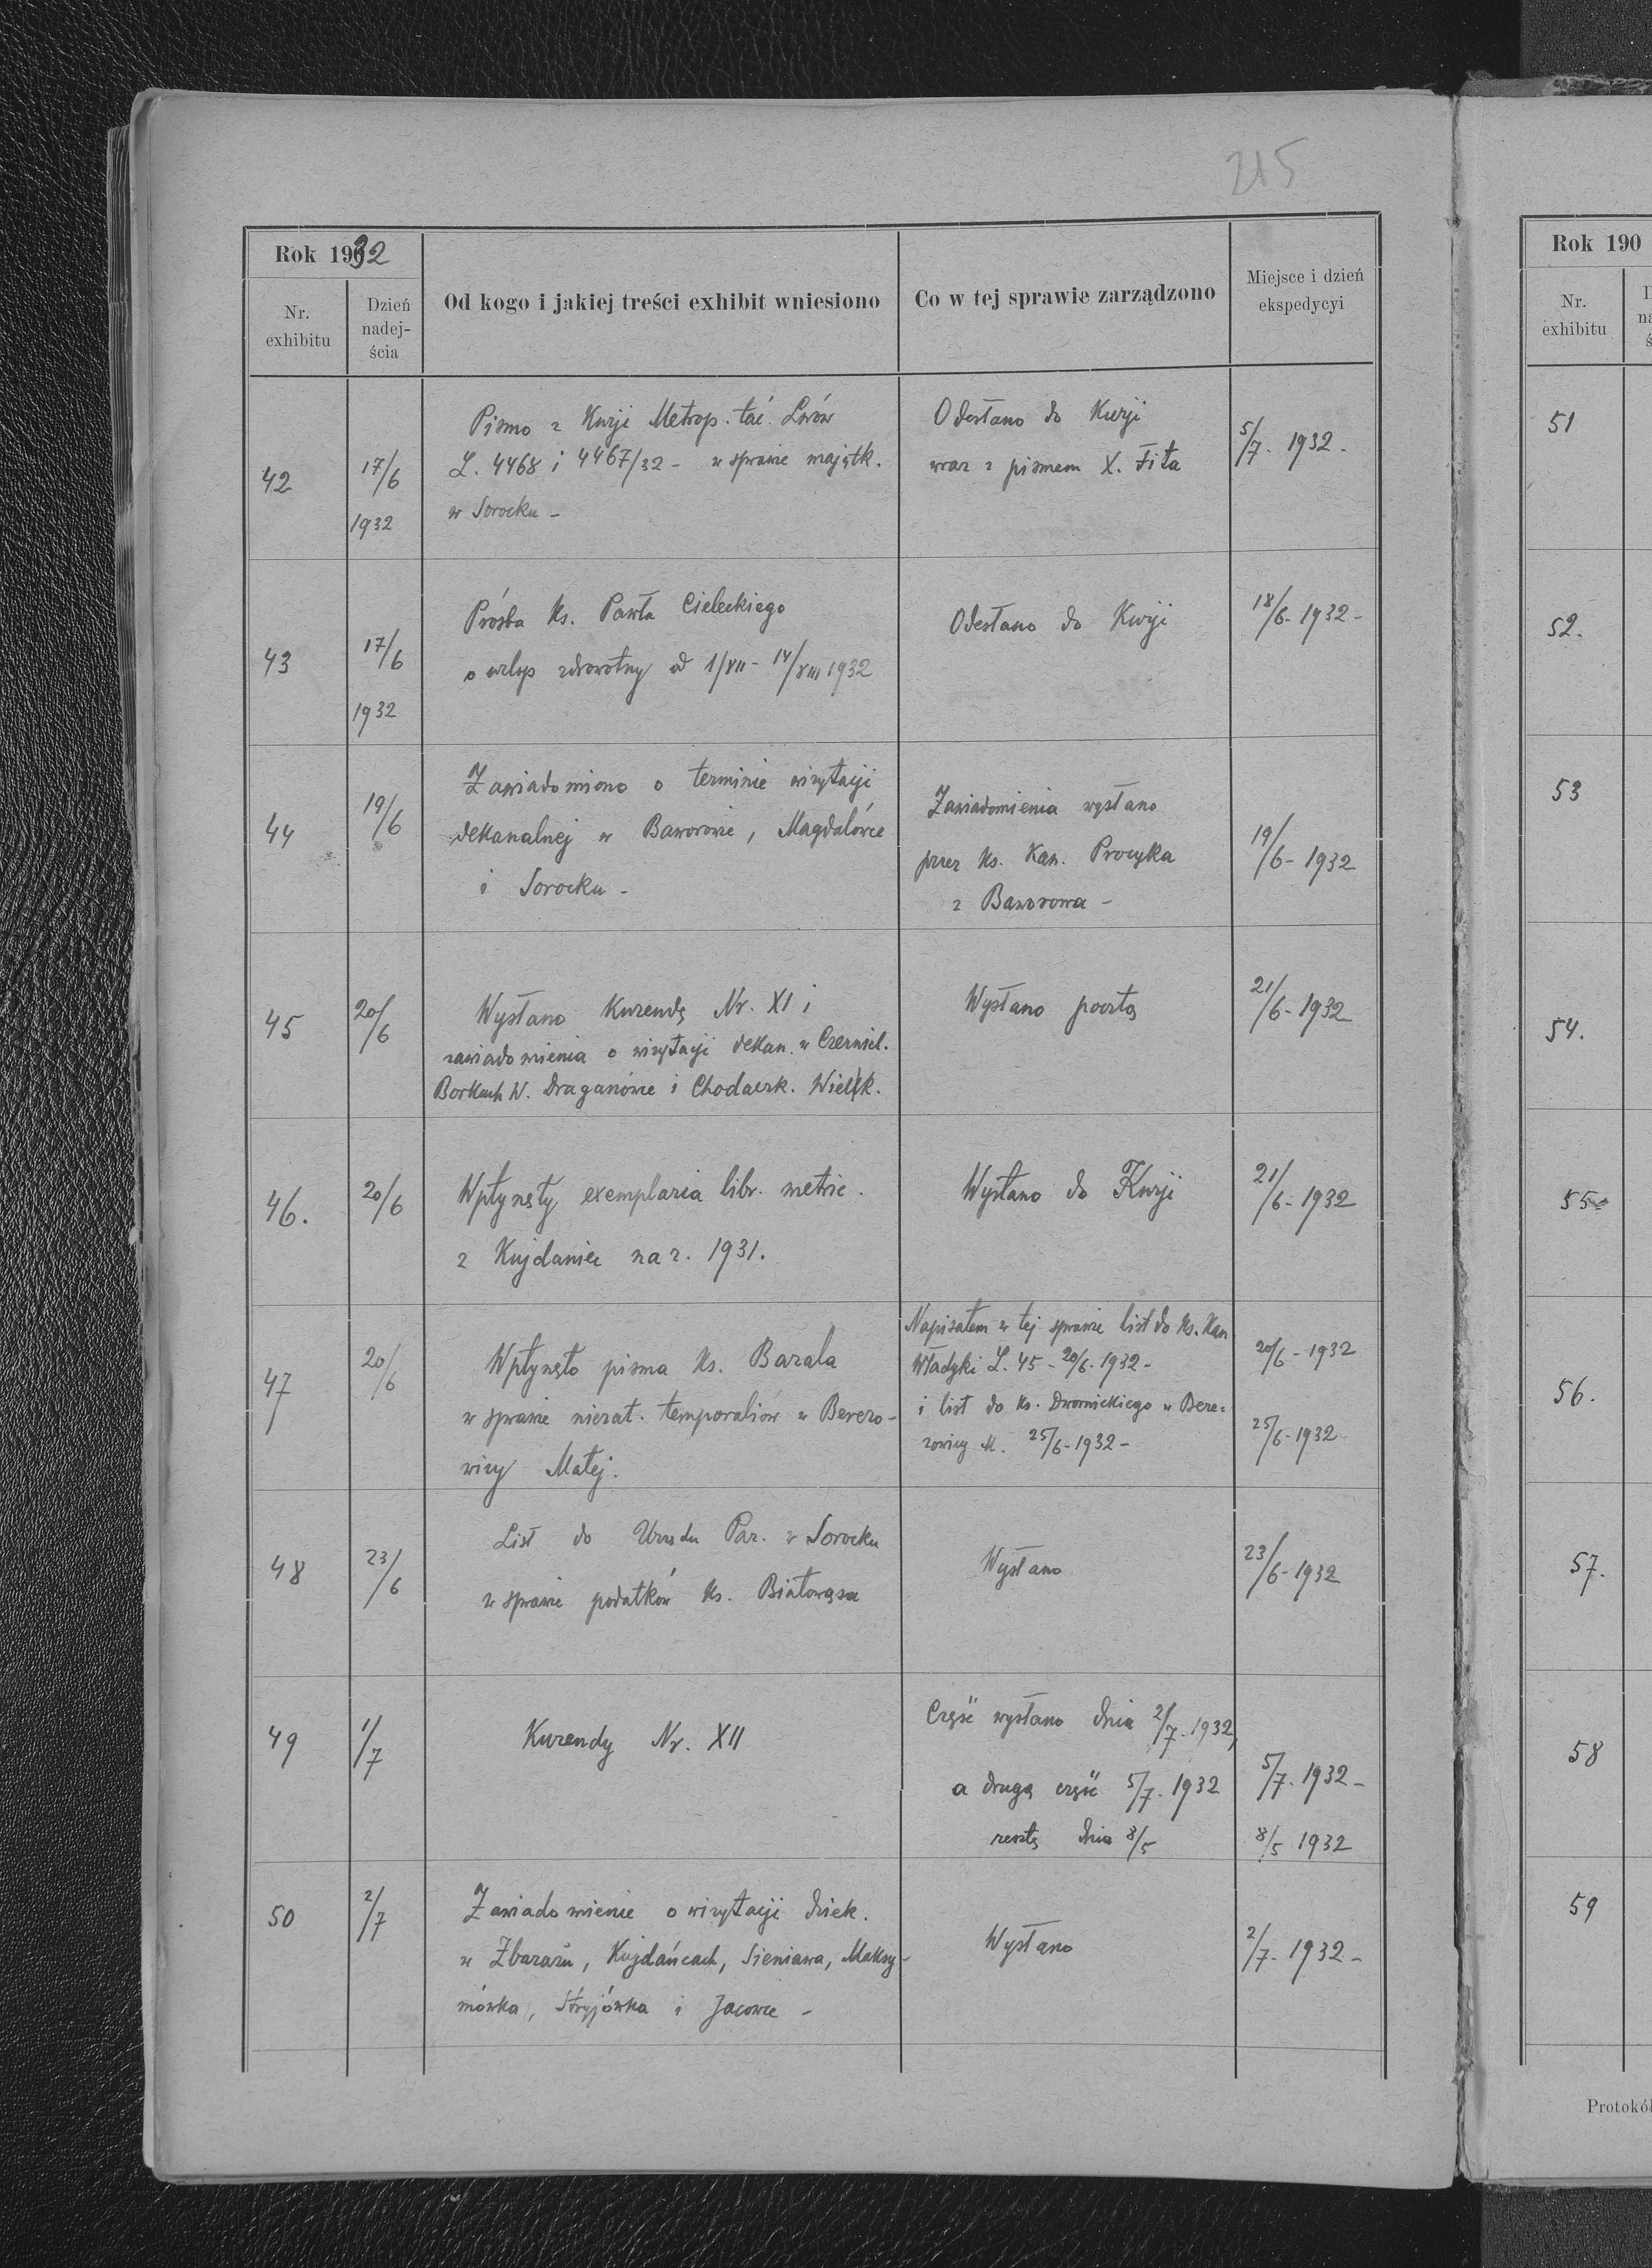 215
Rok 1932
Nr. exhibitu
Dzień nadejścia
Od kogo i jakiej treści exhibit wniesiono
Co w tej sprawie zarządzono
Miejsce i dzień ekspedycyi
42
17/6
1932
Pismo z Kurji Metrop. łać. Lwów
L. 4468 i 4467/32 - w sprawie majątk.
w Sorocku -
Odesłano do Kurji
wraz z pismem X. Fita
5/7. 1932 -
43
17/6
1932
Prośba ks. Pawła Cieleckiego
o urlop zdrowotny od 1/VII - 14/VIII 1932
Odesłano do Kurji
18/6 - 1932 -
44
19/6
Zawiadomiono o terminie wizytacji
dekanalnej w Baworowie, Magdalówce
i Sorocku -
Zawiadomienia wysłano
przez ks. Kan. Procyka
z Baworowa -
19/6 - 1932
45
20/6
Wysłano Kurendę Nr. XI i
zawiadomienia o wizytacji dekan. w Czerniel.
Borkach W. Draganówce i Chodaczk. Wielk.
Wysłano pocztą
21/6 - 1932
46.
20/6
Wpłynęły exemplaria libr. metric.
z Kujdaniec na r. 1931.
Wysłano do Kurji
21/6 - 1932
47
20/6
Wpłynęło pisma ks. Barala
w sprawie niezał. temporaliów w Berezo-
wicy Małej.
Napisałem w tej sprawie list do ks. Kan
Władyki L. 45 - 20/6 - 1932 -
i list do ks. Dwornickiego w Bere=
zowicy M. 25/6 - 1932 -
20/6 - 1932
25/6 - 1932
48
23/6
List do Urzędu Par. w Sorocku
w sprawie podatków ks. Białowąsa
Wysłano
23/6 - 1932
49
1/7
Kurendy Nr. XII
Część wysłano dnia 2/7. 1932,
a drugą część 5/7. 1932
resztę dnia 8/5
5/7. 1932 -
8/5 1932
50
2/7
Zawiadomienie o wizytacji dziek.
w Zbarażu, Kujdańcach, Sieniawa, Maksy-
mówka, Stryjówka i Jacowce -
Wysłano
2/7 - 1932 -
Rok 190
Nr. exhibitu
51
52.
53
54.
55
56.
57.
58
59